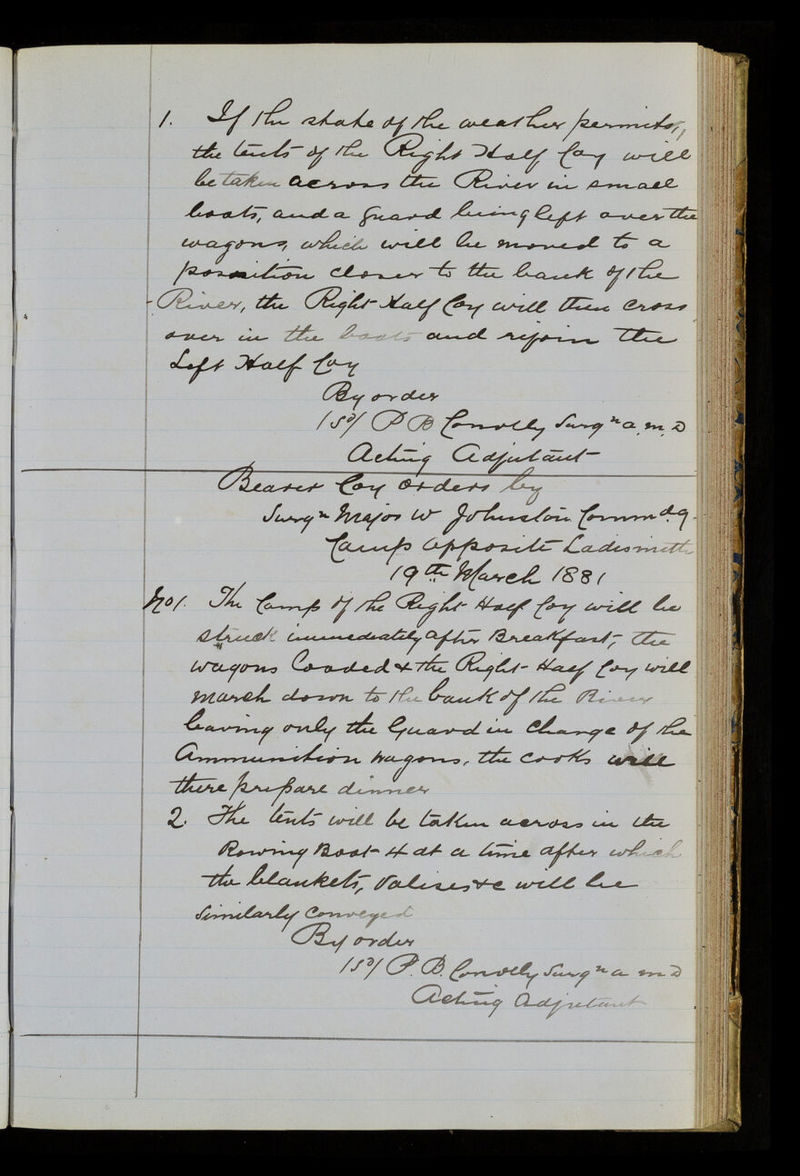 1. If the state of the weather permits,
the tents of the Right Half Coy will
be taken across the River in small
boats, and a guard being left over the
wagons, which will be moved to a
position closer to the bank of the
River, the Right Half Coy will then cross
over in the boats and rejoin the
Left Half Coy
By order
/sd/ P B Connolly Surgn a.m.D
Acting Adjutant
Bearer Coy orders by
Surgn Major W Johnston Commdg
Camp opposite Ladismith
19th March 1881
No 1. The Camp of the Right Half Coy will be
struck immediately after Breakfast, the
wagons Loaded & the Right Half Coy will
march down to the bank of the River
leaving only the Guard in charge of the
Ammunition wagons, the cooks will
there prepare dinner
2. The tents will be taken across in the
Rowing Boat 4 at a time after which
the blankets, valises &c will be
similarly conveyed
By order
/sd/ P. B. Connolly Surgn a m D
Acting Adjutant